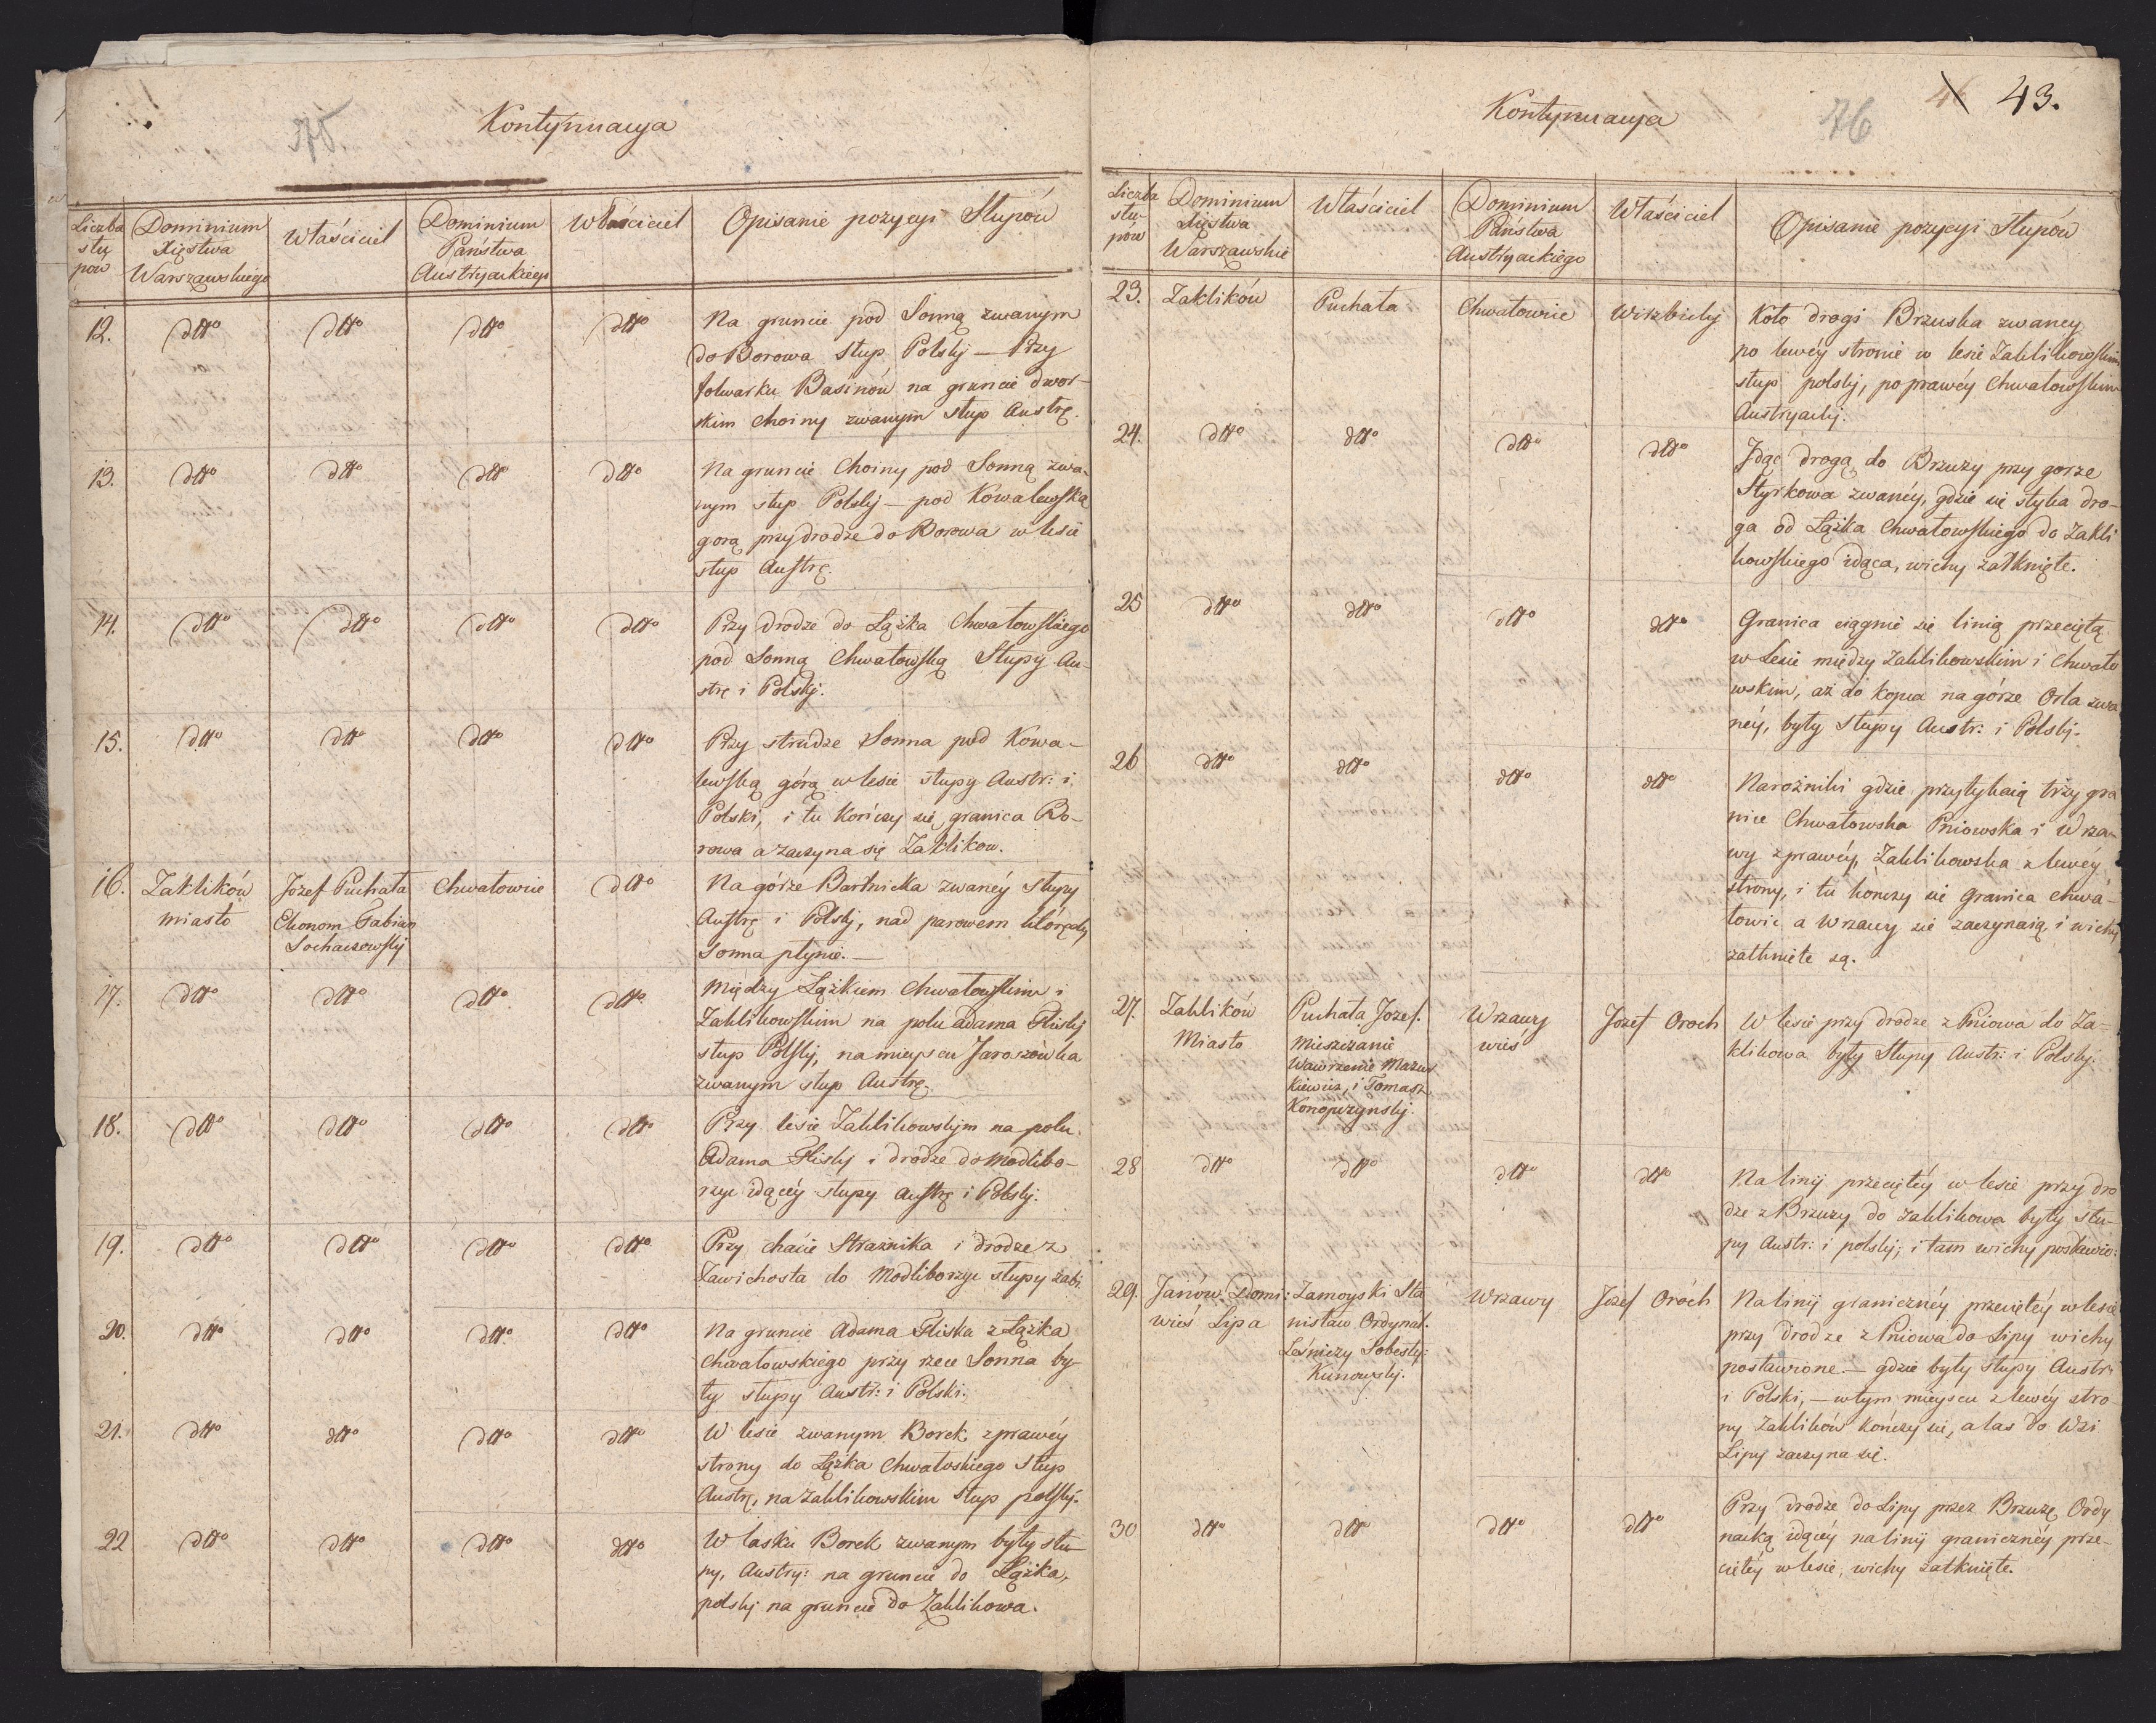 75
Kontynuacya
Liczba słu pow | Dominium Xięstwa Warszawskiego | Właściciel | Dominium Państwa Austryackiego | Właściciel | Opisanie pozycyi Słupów
12. dtto dtto dtto dtto Na gruncie pod Sonną zwanym
do Borowa słup Polskj — Przy
folwarku Basinów na gruncie dwor-
skim Choiny zwanym słup Austrę.
13. dtto dtto dtto dtto Na gruncie Choiny pod Sonną zwa-
nym słup Polskj — pod Kowalewską
gorą przy drodze do Borowa w lesie
słup Austrę.
14. dtto dtto dtto dtto Przy drodze do Łążka Chwałowskiego
pod Sonną Chwałowską Słupy Au-
strę i Polskj.
15. dtto dtto dtto dtto Przy strudze Sonna pod Kowa-
lewską górą w lesie słupy Austr: i
Polski, i tu kończy się granica Bo-
rowa a zaczyna się Zaklikow.
16. Zaklików Jozef Puchała Chwałowice dtto Na górze Bartnicka zwanéy słupy
miasto Ekonom Fabian Austrę i Polskj, nad parowem którędy
Sochaczewskj Sonna płynie. —
17. dtto dtto dtto dtto Między Łążkiem Chwałowskim i
Zaklikowskim na polu Adama Fliskj
słup Polskj, na mieyscu Jaroszówka
zwanym słup Austrę.
18. dtto dtto dtto dtto Przy lesie Zaklikowskjm na polu
Adama Fliskj i drodze do Modlibo-
rzyc idącéy słupy Austrę i Polskj.
19. dtto dtto dtto dtto Przy chacie Strażnika i drodze z
Zawichosta do Modliborzyc słupy zabi
20. dtto dtto dtto dtto Na gruncie Adama Fliska z Łążka
Chwałowskiego przy rzece Sonna by-
ły słupy Austr: i Polski.
21. dtto dtto dtto dtto W lesie zwanym Borek z prawéy
strony do Łążka Chwałoskiego słup
Austrę, na Zaklikowskim słup polskj.
22 dtto dtto dtto dtto W lasku Borek zwanym były słu-
py, Austry: na gruncie do Łążka,
polskj na gruncie do Zaklikowa.
76
43.
Kontynuacya
Liczba słu- pów | Dominium Xięstwa Warszawskie | Właściciel | Dominium Państwa Austryackiego | Właściciel | Opisanie pozycyi Słupów
23. Zaklików Puchała Chwałowice Wiszbickj Koło drogi Brzuska zwaney
po lewéy stronie w lesie Zaklikowskim
słup polskj, po prawéy Chwałowskim
Austryackj.
24. dtto dtto dtto dtto Jdąc drogą do Brzuzy przy gorze
Styrkowa zwanéy, gdzie się styka dro-
ga od Łążka Chwałowskiego do Zakli
kowskiego idąca, wichy zatknięte.
25 dtto dtto dtto dtto Granica ciągnie się linią przeciętą
w Lesie między Zaklikowskim i Chwało
wskim, aż do kopca na górze Orla zwa
néy, były słupy Austr: i Polskj.
26 dtto dtto dtto dtto Narożniki gdzie przytykaią trzy gra
nice Chwałowska Pniowska i Wrza-
wy z prawéy, Zaklikowska z lewéy
strony, i tu kończy się granica Chwa-
łowic a Wrzawy się zaczynaią i wichy
zatknięte są.
27. Zaklików Puchała Jozef. Wrzawy Jozef Oroch W lesie przy drodze z Pniowa do Za-
Miasto Mieszczanie wieś klikowa były Słupy Austr: i Polskj.
Wawrzeniec Mazur
kiewicz, i Tomasz
Konopczynskj.
28 dtto dtto dtto dtto Na linij przeciętéy w lesie przy dro
dze z Brzuzy do Zaklikowa były słu-
py Austr: i polskj, i tam wichy postawio:
29. Janów Domi: Zamoyski Sta Wrzawy Jozef Oroch Na linij granicznéy przeciętéy w lesie
wieś Lipa nisław Ordynat. przy drodze z Pniowa do Lipy wichy
Leśniczy Sobestj: postawione. — gdzie były słupy Austr:
Kunowskj. i Polski, — w tym mieyscu z lewéy stro
ny Zaklików kończy się, a las do Wsi
Lipy zaczyna się.
30 dtto dtto dtto dtto Przy drodze do Lipy przez Brzuzę Ordy
nacką idącéy na linij granicznéy prze-
ciętéy w lesie, wichy zatknięte.